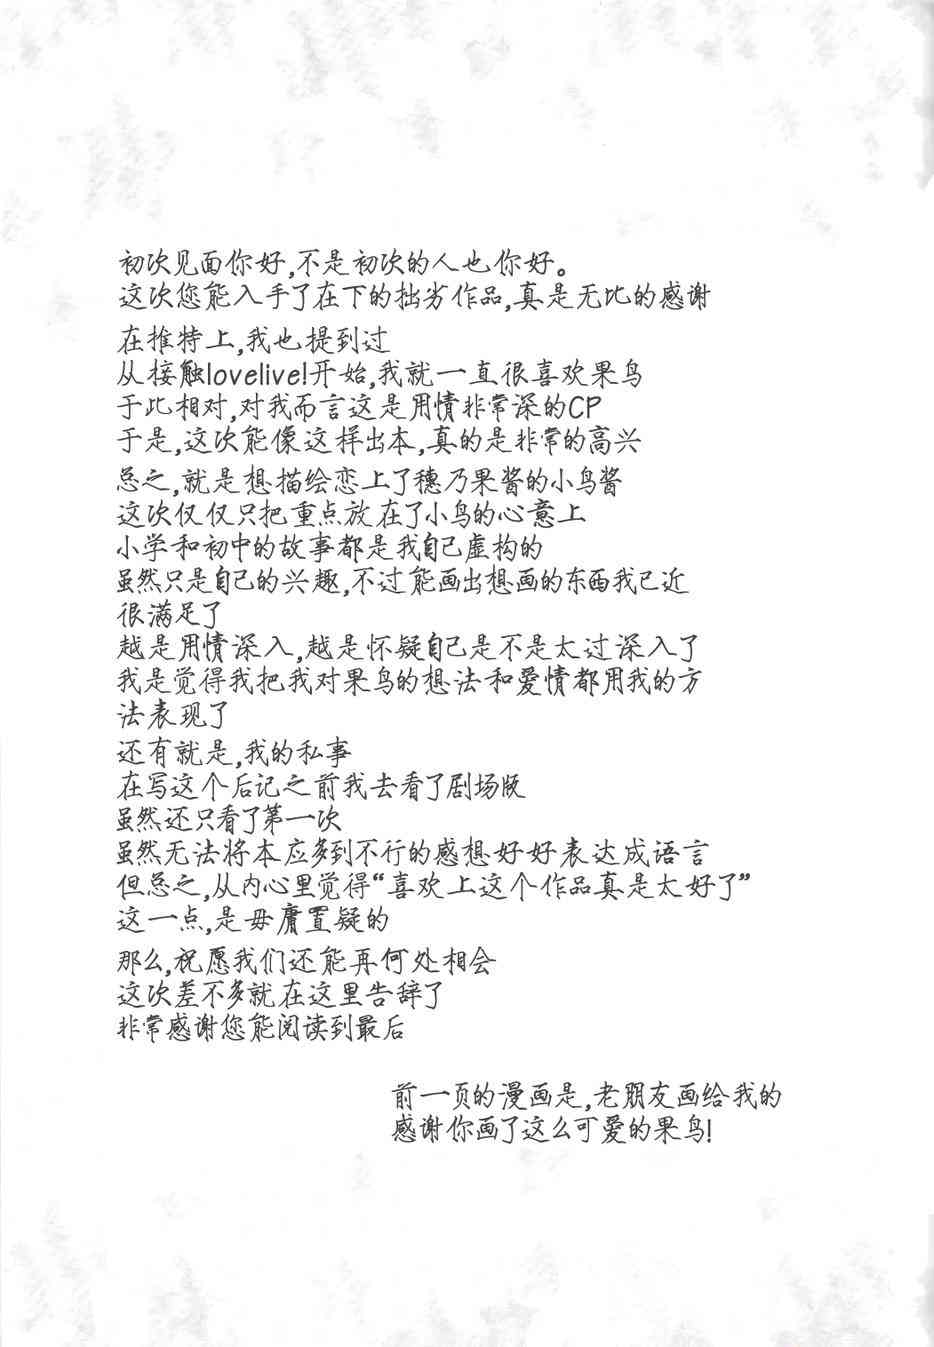 初次见面你好,不是初次的人也你好。
这次您能入手了在下的拙劣作品,真是无比的感谢
在推特上,我也提到过
从接触lovelive!开始,我就一直很喜欢果鸟
于此相对,对我而言这是用情非常深的CP
于是,这次能像这样出本,真的是非常的高兴
总之,就是想描绘恋上了穗乃果酱的小鸟酱
这次仅仅只把重点放在了小鸟的心意上
小学和初中的故事都是我自己虚构的
虽然只是自己的兴趣,不过能画出想画的东西我已近
很满足了
越是用情深入,越是怀疑自己是不是太过深入了
我是觉得我把我对果鸟的想法和爱情都用我的方
法表现了
还有就是,我的私事
在写这个后记之前我去看了剧场版
虽然还只看了第一次
虽然无法将本应多到不行的感想好好表达成语言
但总之,从内心里觉得“喜欢上这个作品真是太好了”
这一点,是毋庸置疑的
那么,祝愿我们还能再何处相会
这次差不多就在这里告辞了
非常感谢您能阅读到最后
前一页的漫画是,老朋友画给我的
感谢你画了这么可爱的果鸟!